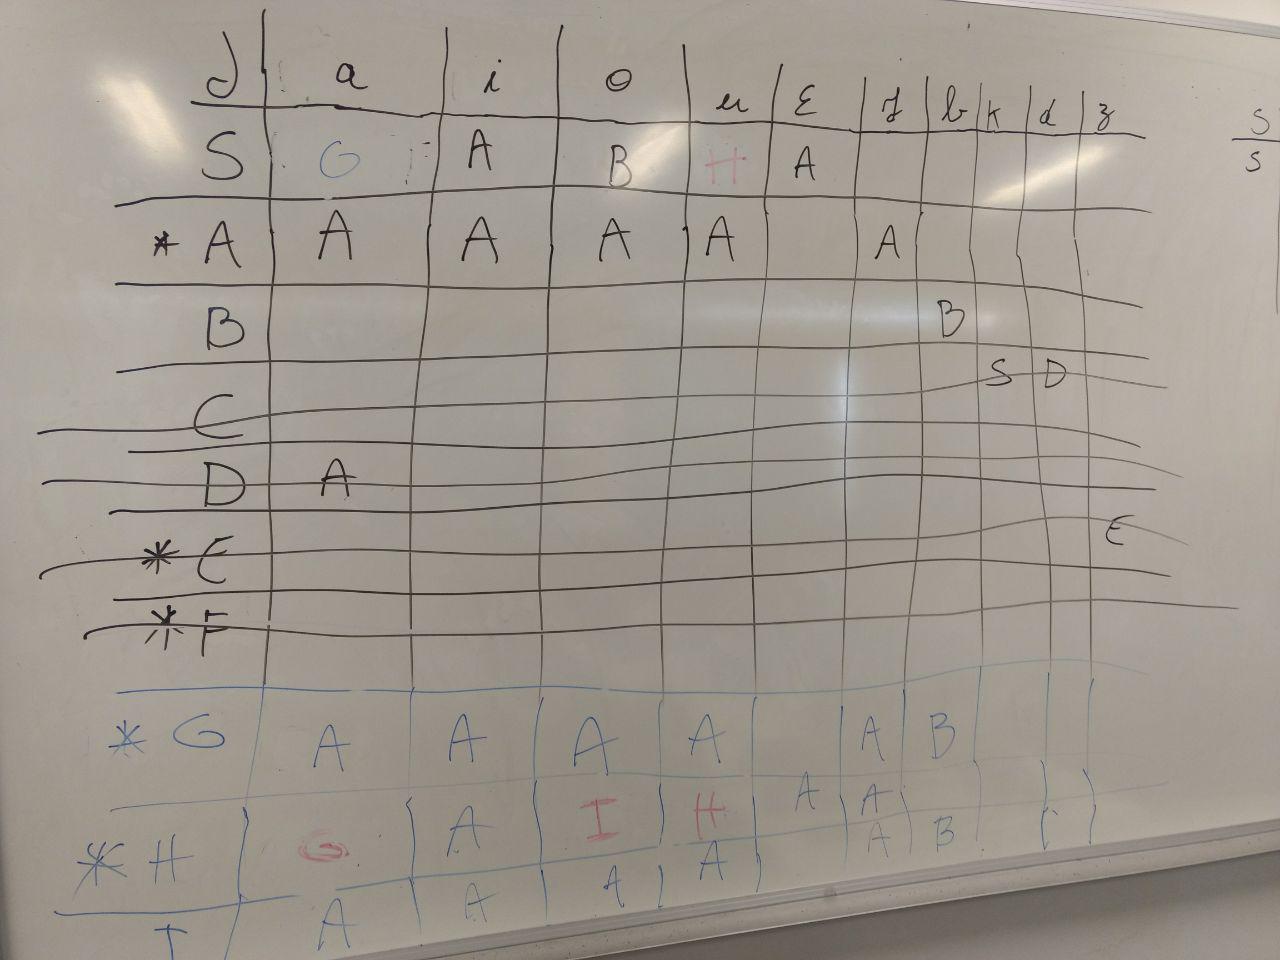 δ a i o u ε f b k d z
S G A B H A
* A A A A A A
B B
C S D
D A
* E E
* F
* G A A A A A B
* H G A I H A A
I A A A A A B
S
S